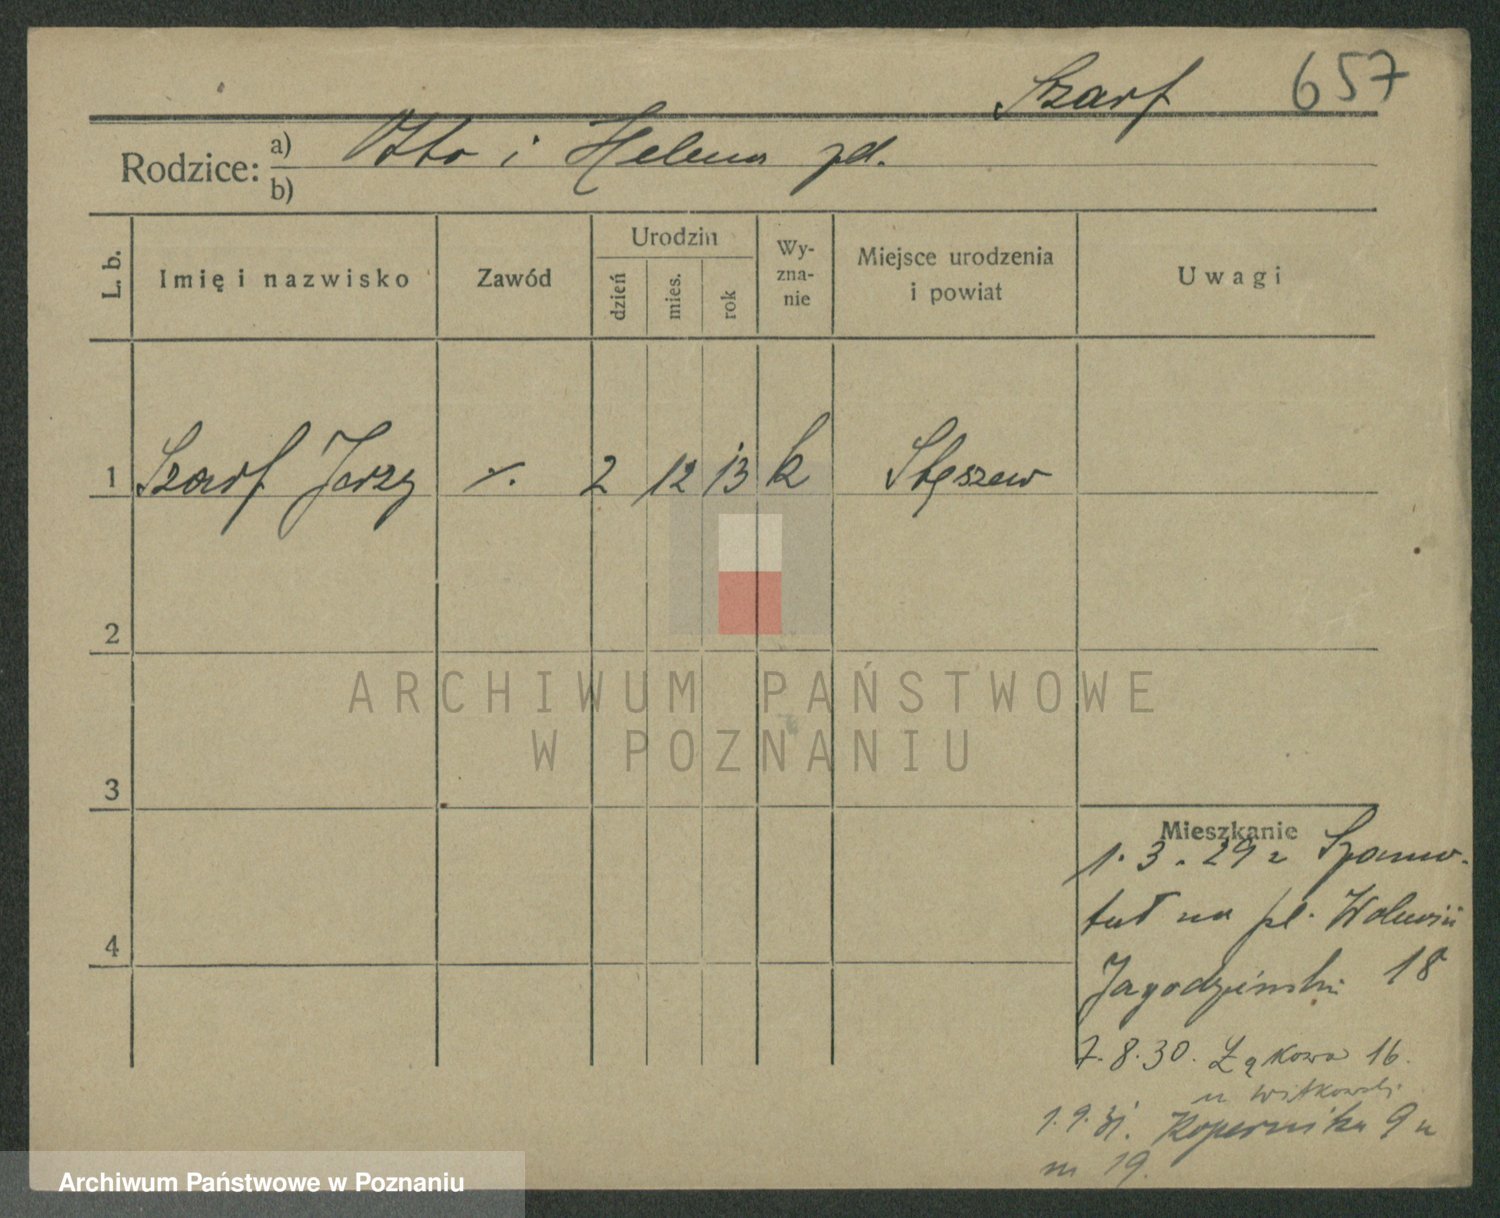 Szarf 657
Rodzice: a) Otto i Helena
b)
L. b. Imię i nazwisko Zawód Urodzin dzień mies. rok Wy-zna-nie Miejsce urodzenia i powiat Uwagi
1 Szarf Jerzy ./. 2 12 13 k Stęszew
2
3
4
Mieszkanie
1. 3. 29 z Szamo-
tuł na pl.
Jagodziński 18
7. 8. 30. Łąkowa 16.
u Witkowski
1. 9. 31. Kopernika 9 u
m 19.
ARCHIWUM PAŃSTWOWE
W POZNANIU
Archiwum Państwowe w Poznaniu